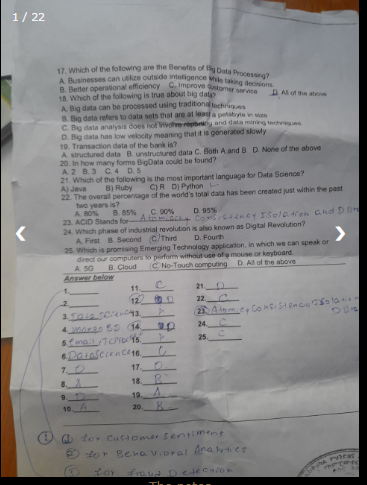 1 / 22
17. Which of the following are the Benefits of Big Data Processing?
A. Businesses can utilize outside intelligence while taking decisions
B. Better operational efficiency C. Improve customer service D. All of the above
18. Which of the following is true about big data?
A. Big data can be processed using traditional techniques
B. Big data refers to data sets that are at least a petabyte in size
C. Big data analysis does not involve reporting and data mining techniques
D. Big data has low velocity meaning that it is generated slowly
19. Transaction data of the bank is?
A. structured data B. unstructured data C. Both A and B D. None of the above
20. In how many forms BigData could be found?
A. 2 B. 3 C. 4 D. 5
21. Which of the following is the most important language for Data Science?
A) Java B) Ruby C) R D) Python
22. The overall percentage of the world's total data has been created just within the past
two years is?
A. 80% B. 85% C. 90% D. 95%
23. ACID Stands for Atomicity Consistency Isolation and
24. Which phase of industrial revolution is also known as Digital Revolution?
A. First B. Second C. Third D. Fourth
25. Which is promising Emerging Technology application, in which we can speak or
direct our computers to perform without use of a mouse or keyboard.
A. 5G B. Cloud C. No-Touch computing D. All of the above
Answer below
1. 11. C 21. D
2. 12. D 22. C
3. Data Science 13. 23. Atomicity Consistency Isolation
4. 14. D 24. C
5. 15. 25. C
6. Data Science 16. C
7. D 17. D
8. A 18. B
9. D 19. A
10. A 20. B
1 for customer Sentiment
for Behavioral Analytics
for fraud Detection